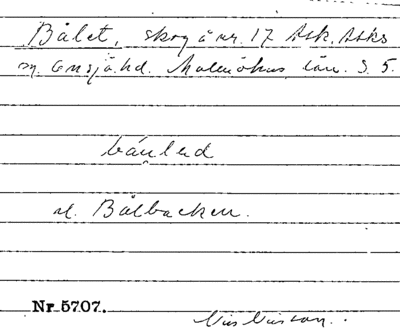 Bålet, skog å nr. 17 Ask. Asks
sn. Onsjö hd. Malmöhus län. S. 5.
bå̤led
el. Bålbacken.
Nr 5707.
Nils Nilsson.